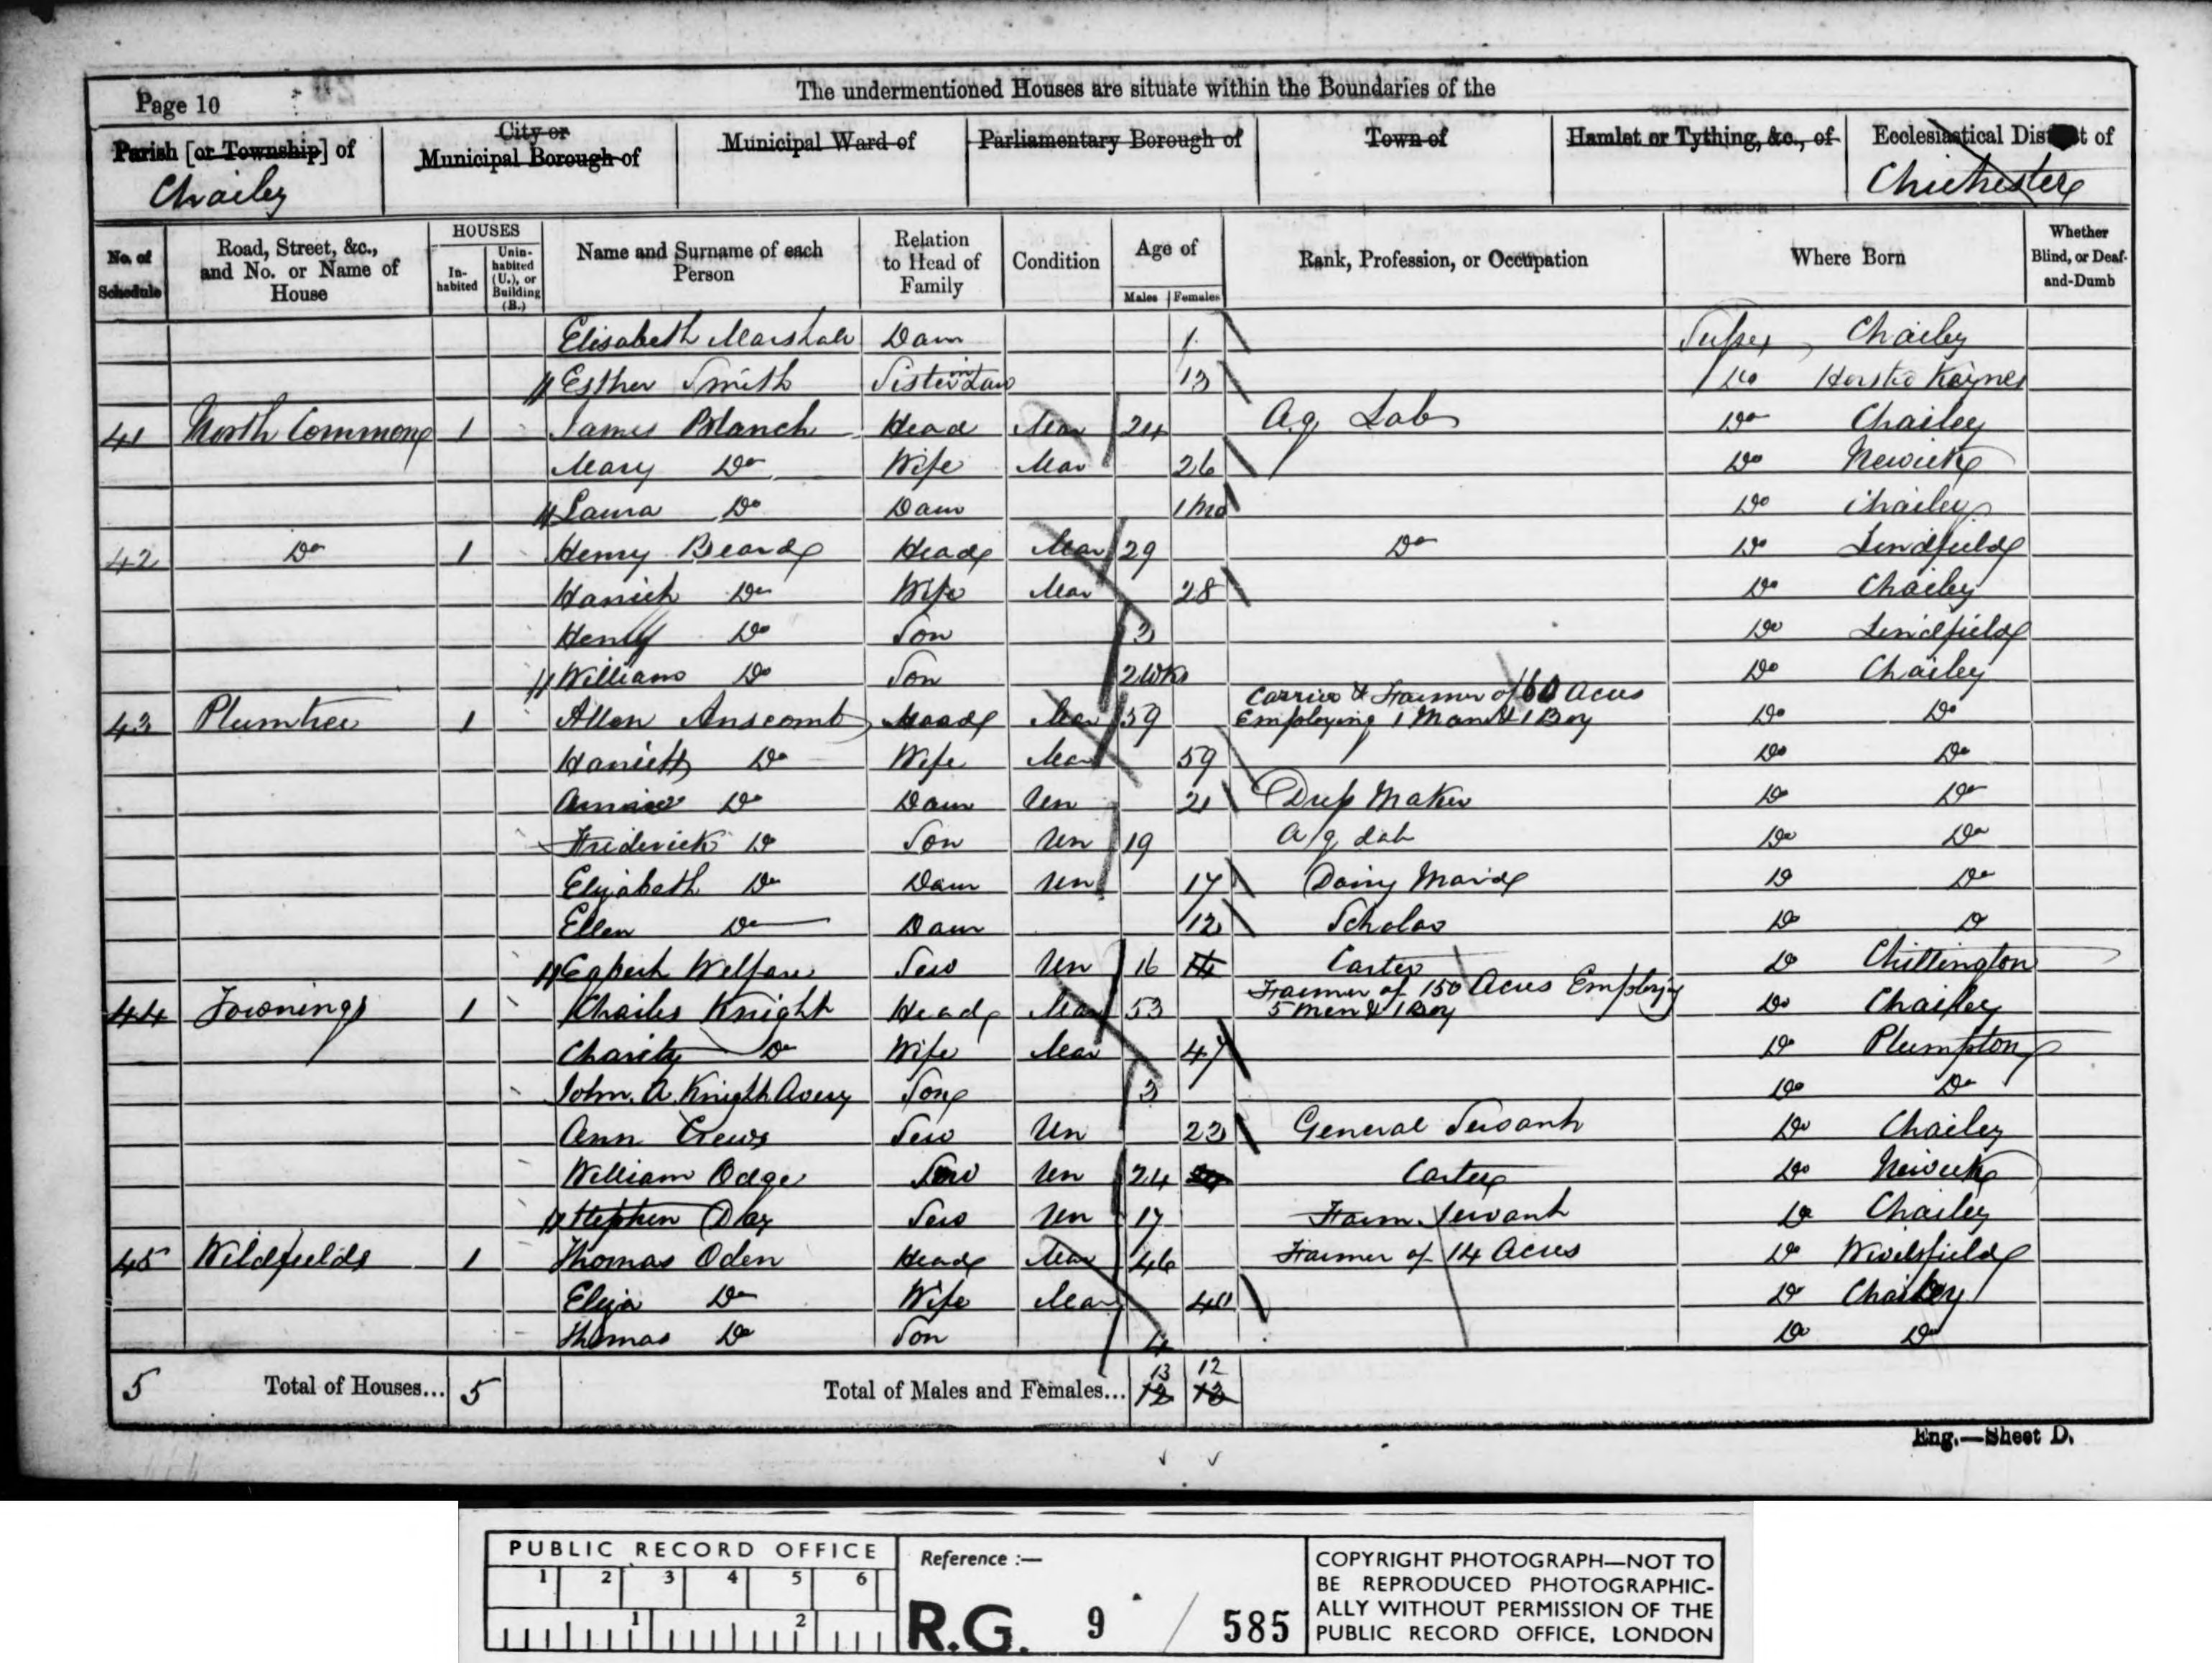 Page 10
The undermentioned Houses are situate within the Boundaries of the
Parish [or Township] of
City or Municipal Borough of
Municipal Ward of
Parliamentary Borough of
Town of
Hamlet or Tything, &c., of
Ecclesiastical District of
Chailey
Chichester
No. of Schedule
Road, Street, &c., and No. or Name of House
HOUSES
In-habited
Unin-habited (U.), or Building (B.)
Name and Surname of each Person
Relation to Head of Family
Condition
Age of
Males
Females
Rank, Profession, or Occupation
Where Born
Whether Blind, or Deaf-and-Dumb
Elisabeth Marshall Daur 1 Sussex, Chailey
Esther Smith Sister in Law 13 Do Horsted Kaynes
41 North Common 1 James Blanch Head Mar 24 Ag Lab Do Chailey
Mary Do Wife Mar 26 Do Newick
Laura Do Daur 1 Mo Do Chailey
42 Do 1 Henry Beard Head Mar 29 Do Do Lindfield
Do Wife Mar 28 Do Chailey
Henry Do Son 3 Do Lindfield
William Do Son 2 Wks Do Chailey
43 Plumtree 1 Allen Anscomb Head Mar 59 Carrier & Farmer of 60 Acres Employing 1 Man & 1 Boy Do Do
Harriett Do Wife Mar 59 Do Do
Do Daur Un 21 Dress Maker Do Do
Frederick Do Son Un 19 Ag Lab Do Do
Elizabeth Do Daur Un 17 Dairy Maid Do Do
Ellen Do Daur 12 Scholar Do Do
Egbert Welfare Serv Un 16 Carter Do Chiltington
44 Townings 1 Charles Knight Head Mar 53 Farmer of 150 Acres Employing 5 Men & 1 Boy Do Chailey
Charity Do Wife Mar 47 Do Plumpton
John A. Knight Avery Son 3 Do Do
Ann Crews Serv Un 23 General Servant Do Chailey
William Odge Serv Un 24 Carter Do Newick
Stephen Day Serv Un 17 Farm Servant Do Chailey
45 Wildfields 1 Thomas Oden Head Mar 46 Farmer of 14 Acres Do Wivelsfield
Eliza Do Wife Mar 40 Do Chailey
Thomas Do Son 4 Do Do
5 Total of Houses... 5 Total of Males and Females... 13 12
12 13
Eng.—Sheet D.
PUBLIC RECORD OFFICE
1 2 3 4 5 6
1 2
Reference :—
R.G. 9 / 585
COPYRIGHT PHOTOGRAPH—NOT TO
BE REPRODUCED PHOTOGRAPHIC-
ALLY WITHOUT PERMISSION OF THE
PUBLIC RECORD OFFICE, LONDON